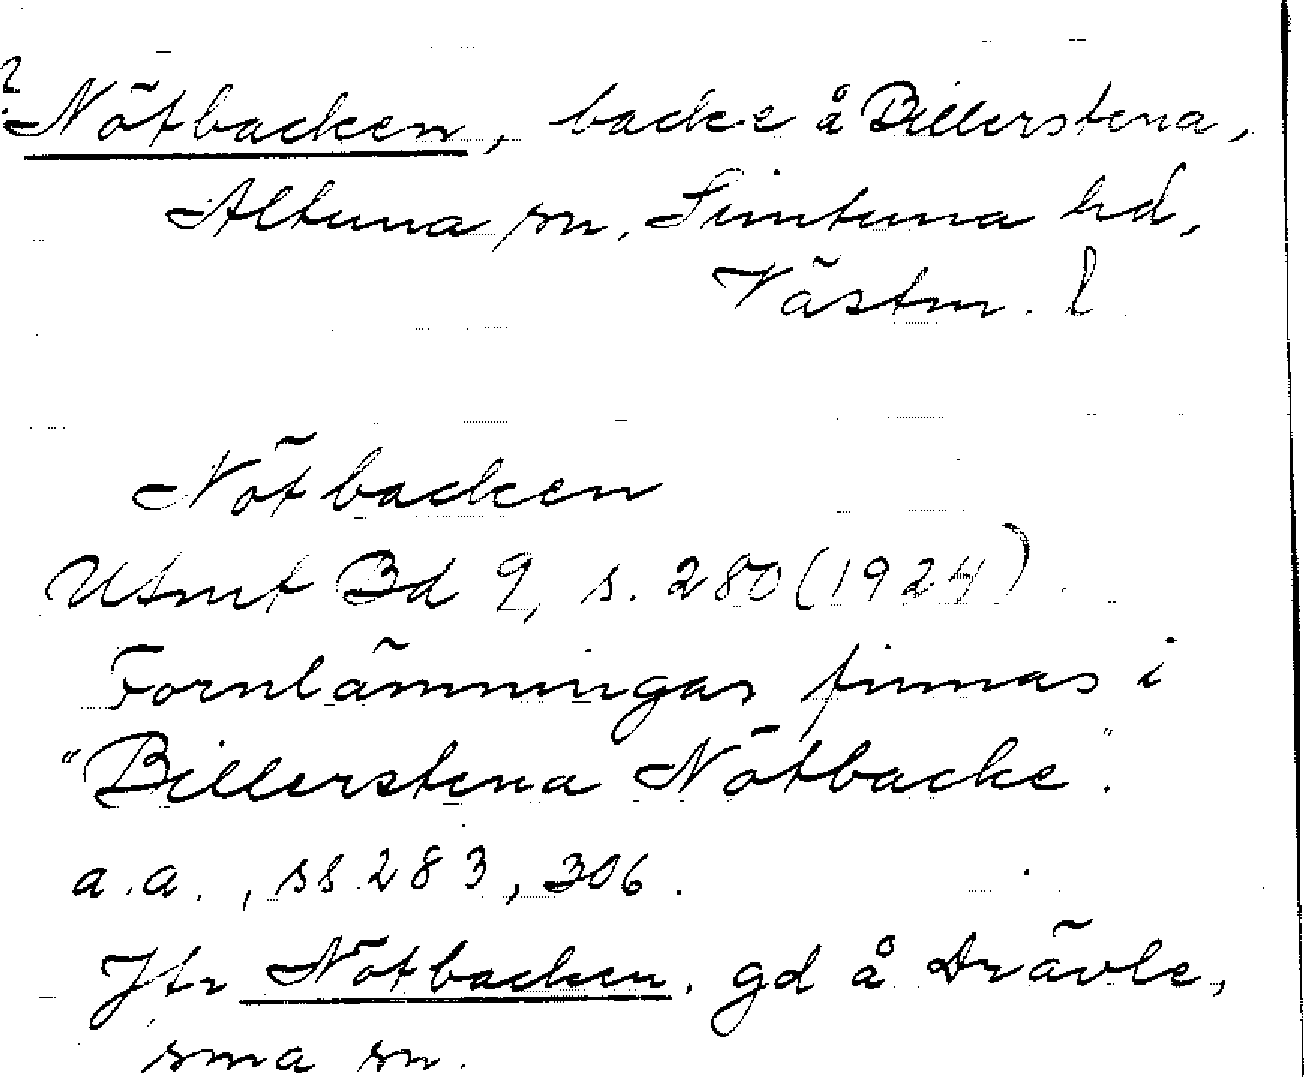 Nötbacken, backe å Billerstena,
Altuna sn, Simtuna hd,
Västm. l
Nötbacken
Utmt Bd 9, s. 280 (1924)
Fornlämningar finnas i
"Billerstena Nötbacke".
a.a., ss. 283, 306.
Jfr Nötbacken, gd å Drävle,
sma sn.